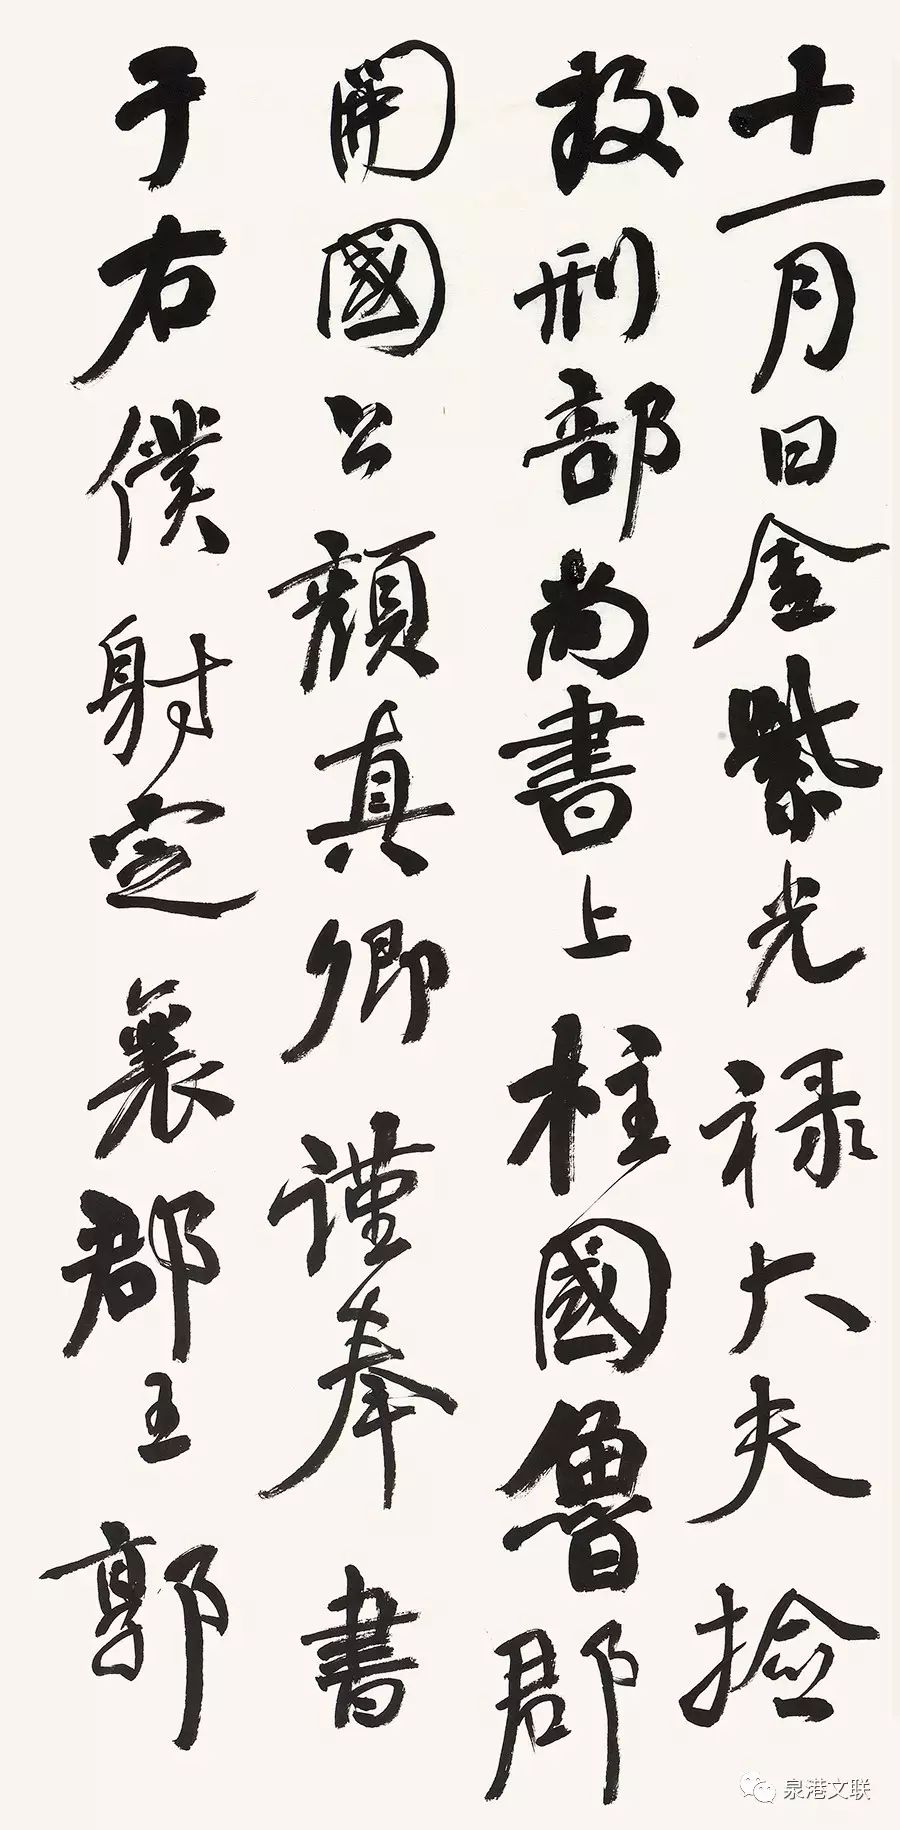 十一月日金紫光禄大夫撿
挍刑部尚書上柱國魯郡
開國公顔真卿謹奉書
于右僕射定襄郡王郭
泉港文联